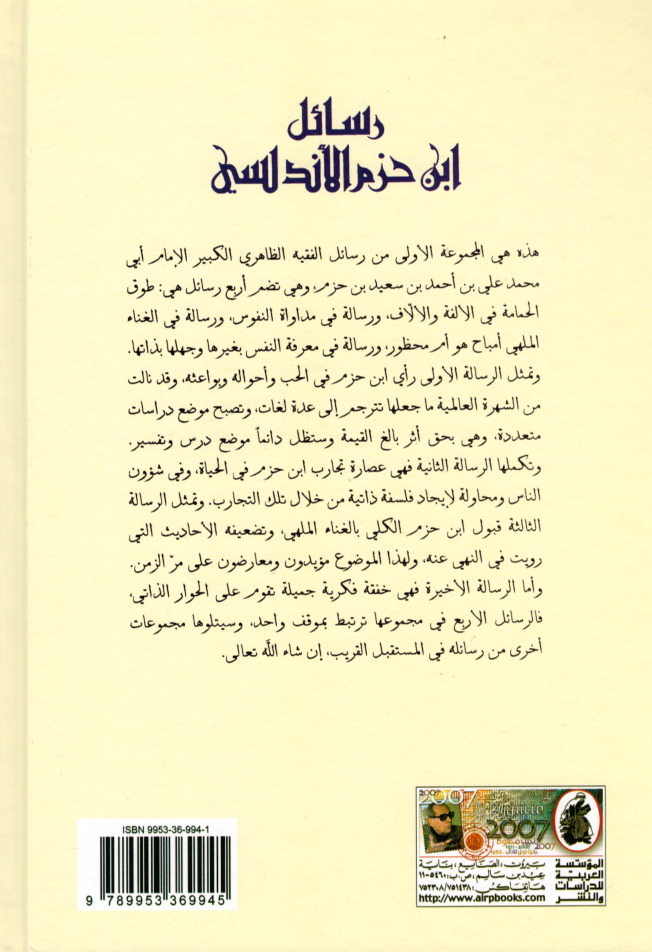 رسائل
ابن حزم الأندلسي
هذه هي المجموعة الأولى من رسائل الفقيه الظاهري الكبير الإمام أبي
محمد علي بن أحمد بن سعيد بن حزم، وهي تضم أربع رسائل هي: طوق
الحمامة في الالفة والالّاف، ورسالة في مداواة النفوس، ورسالة في الغناء
الملهي أمباح هو أم محظور، ورسالة في معرفة النفس بغيرها وجهلها بذاتها.
وتمثل الرسالة الأولى رأي ابن حزم في الحب وأحواله وبواعثه، وقد نالت
من الشهرة العالمية ما جعلها تترجم إلى عدة لغات، وتصبح موضع دراسات
متعددة، وهي بحق أثر بالغ القيمة وستظل دائماً موضع درس وتفسير.
وتكملها الرسالة الثانية فهي عصارة تجارب ابن حزم في الحياة، وفي شؤون
الناس ومحاولة لإيجاد فلسفة ذاتية من خلال تلك التجارب. وتمثل الرسالة
الثالثة قبول ابن حزم الكلي بالغناء الملهي، وتضعيفه الأحاديث التي
رويت في النهي عنه، ولهذا الموضوع مؤيدون ومعارضون على مرّ الزمن.
وأما الرسالة الأخيرة فهي خفقة فكرية جميلة تقوم على الحوار الذاتي،
فالرسائل الأربع في مجموعها ترتبط بموقف واحد، وسيتلوها مجموعات
أخرى من رسائله في المستقبل القريب، إن شاء اللّه تعالى.
ISBN 9953-36-994-1
9 789953 369945
2007
2007
2007
2007
المؤسسة
العربية
للدراسات
والنشر
بيروت، الصنايع، بناية
عيد بن سالم، ص.ب: ٥٤٦٠-١١
هاتفاكس: ٧٥٢٣٠٨/٧٥١٤٣٨
http://www.airpbooks.com